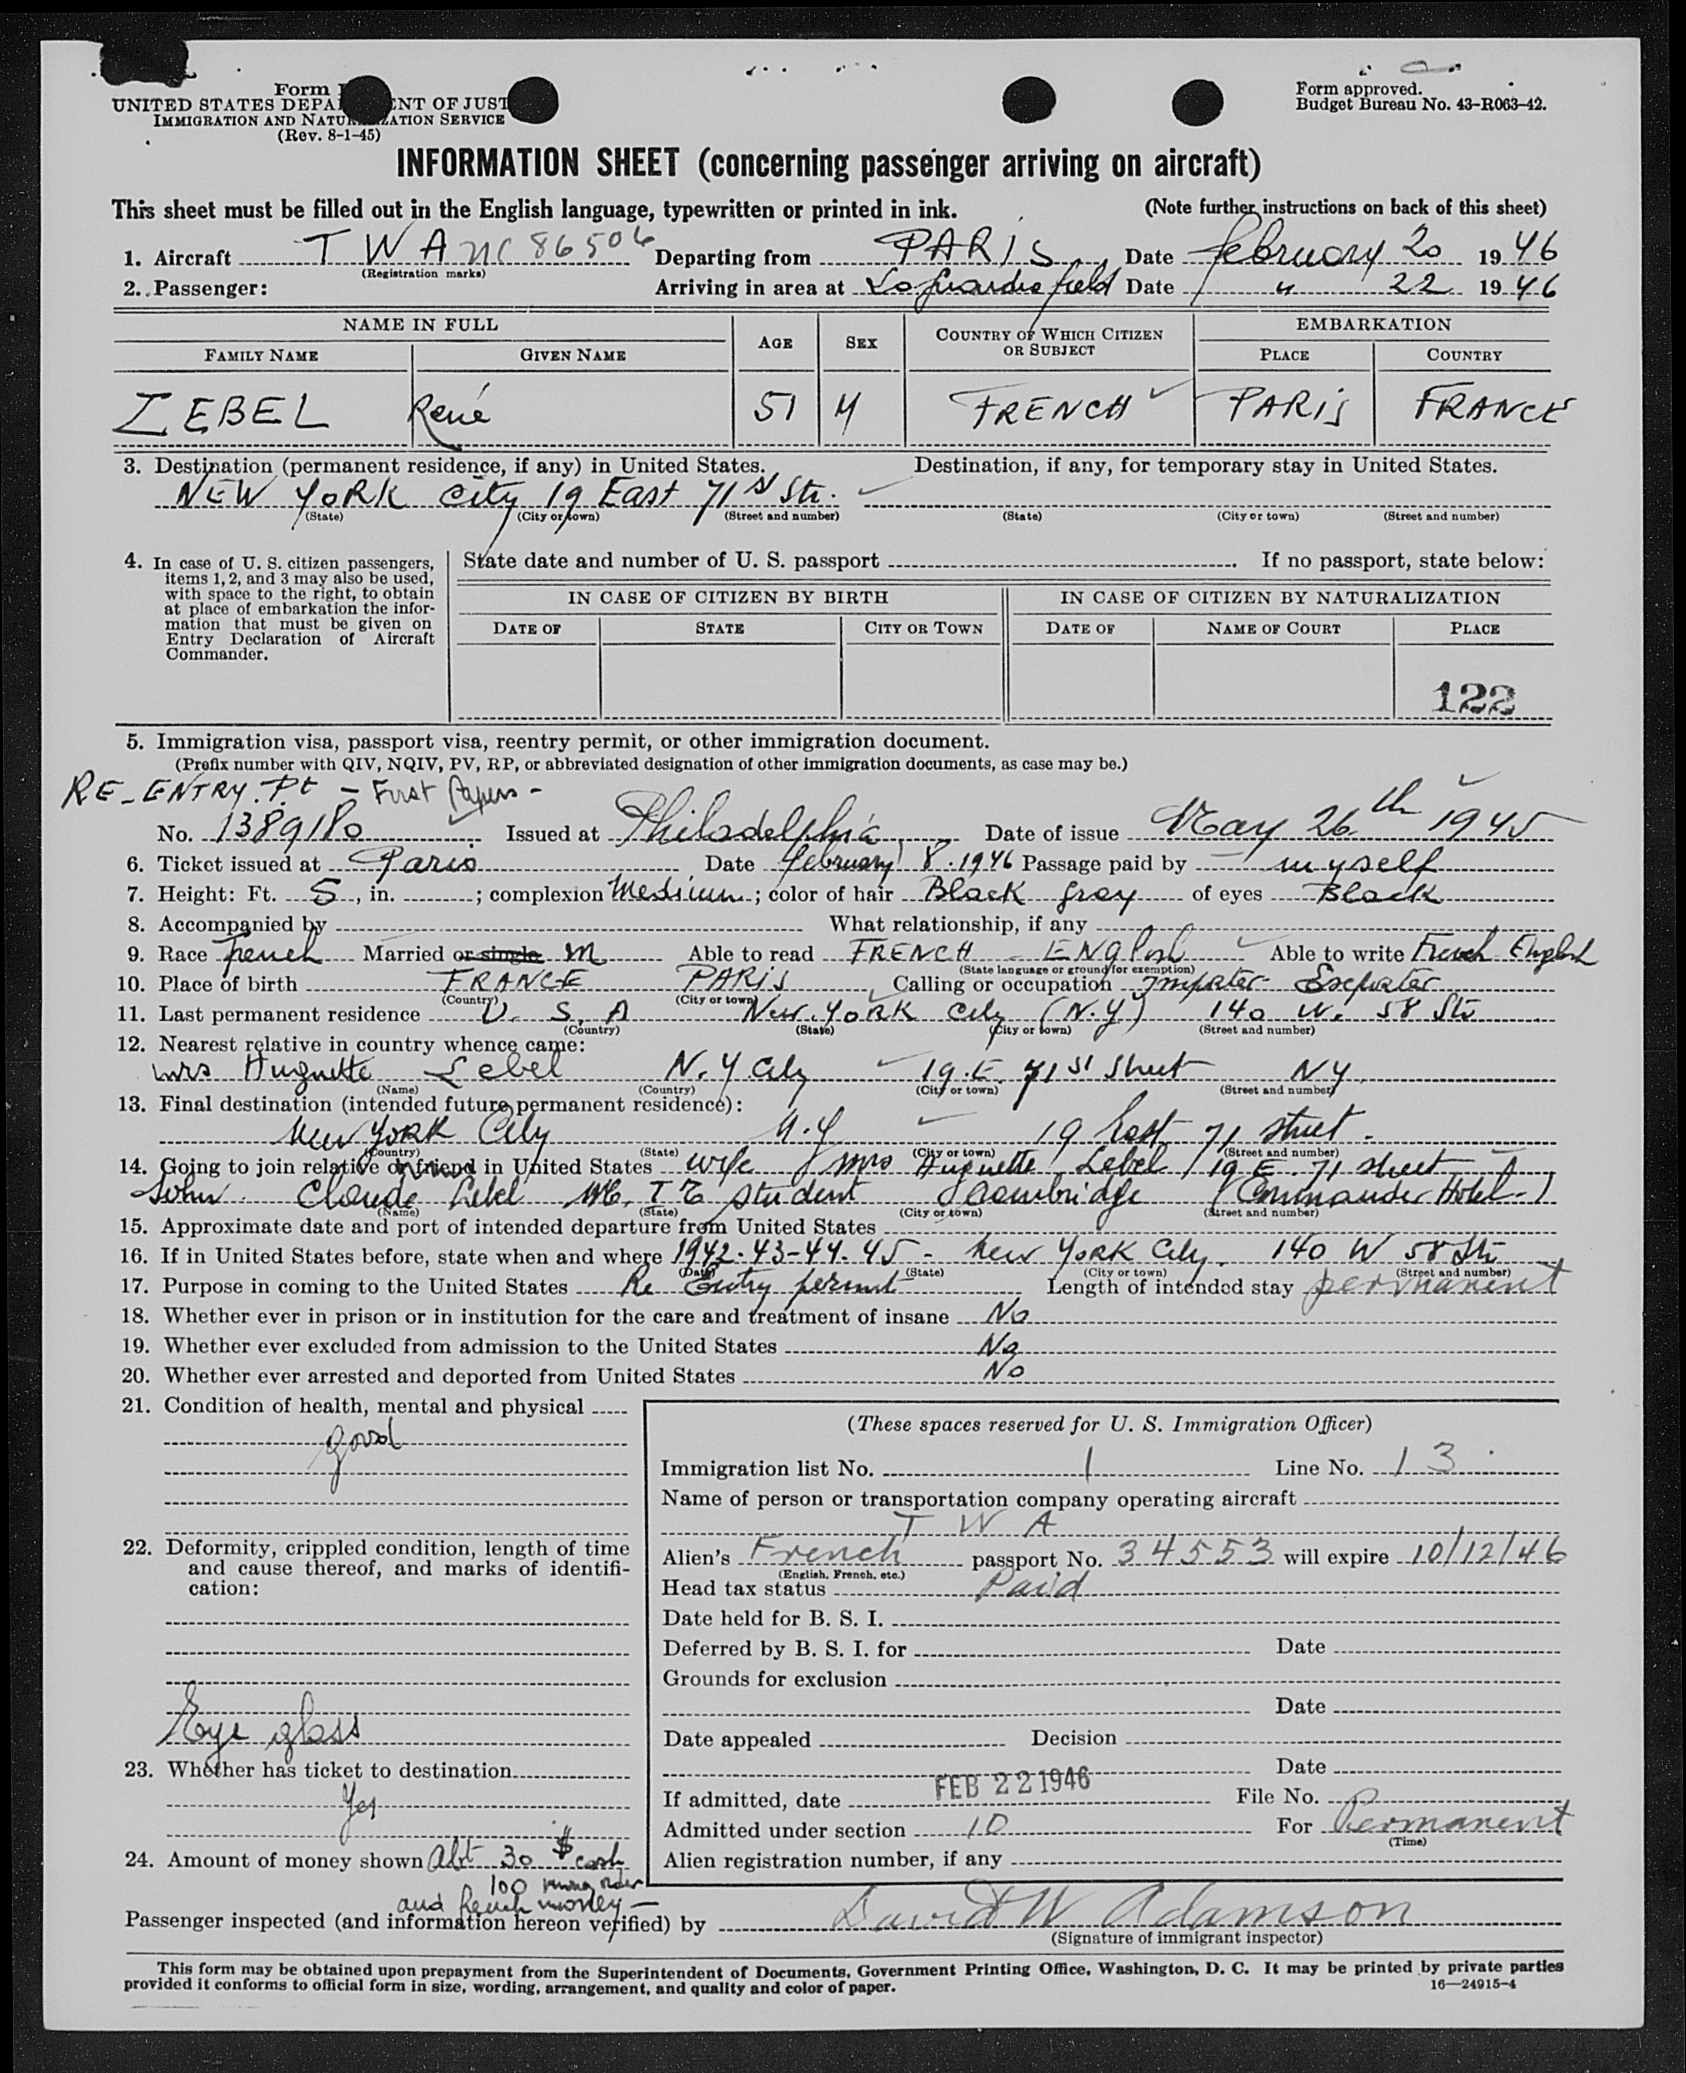 Form
UNITED STATES DEPA ENT OF JUST
IMMIGRATION AND NATU ZATION SERVICE
(Rev. 8-1-45)
Form approved.
Budget Bureau No. 43-R063-42.
INFORMATION SHEET (concerning passenger arriving on aircraft)
This sheet must be filled out in the English language, typewritten or printed in ink. (Note further instructions on back of this sheet)
1. Aircraft TWA NC 86506 Departing from PARIS Date february 20 1946
(Registration marks)
2. Passenger: Arriving in area at La Guardia field Date " 22 1946
NAME IN FULL AGE SEX COUNTRY OF WHICH CITIZEN OR SUBJECT EMBARKATION
FAMILY NAME GIVEN NAME PLACE COUNTRY
LEBEL René 51 M FRENCH PARIS FRANCE
3. Destination (permanent residence, if any) in United States. Destination, if any, for temporary stay in United States.
NEW YORK City 19 East 71st Str.
(State) (City or town) (Street and number) (State) (City or town) (Street and number)
4. In case of U. S. citizen passengers,
items 1, 2, and 3 may also be used,
with space to the right, to obtain
at place of embarkation the infor-
mation that must be given on
Entry Declaration of Aircraft
Commander.
State date and number of U. S. passport . If no passport, state below:
IN CASE OF CITIZEN BY BIRTH IN CASE OF CITIZEN BY NATURALIZATION
DATE OF STATE CITY OR TOWN DATE OF NAME OF COURT PLACE
122
5. Immigration visa, passport visa, reentry permit, or other immigration document.
(Prefix number with QIV, NQIV, PV, RP, or abbreviated designation of other immigration documents, as case may be.)
RE-ENTRY. Pt - First papers -
No. 1389180 Issued at Philadelphia Date of issue May 26th 1945
6. Ticket issued at Paris Date february 8. 1946 Passage paid by - myself
7. Height: Ft. 5, in. ; complexion Medium; color of hair Black gray of eyes Black
8. Accompanied by What relationship, if any
9. Race french Married or single M Able to read FRENCH - ENGlish Able to write French English
(State language or ground for exemption)
10. Place of birth FRANCE PARIS Calling or occupation Importer - Exporter
(Country) (City or town)
11. Last permanent residence U. S. A New York City (N.Y) 140 W. 58 Str
(Country) (State) (City or town) (Street and number)
12. Nearest relative in country whence came:
Mrs Huguette Lebel N. Y City 19. E. 71 st Street NY
(Name) (Country) (City or town) (Street and number)
13. Final destination (intended future permanent residence):
New York City N.Y 19 East 71 street.
(Country) (State) (City or town) (Street and number)
14. Going to join relative or friend in United States wife Mrs Huguette Lebel 19 E. 71 street
Claude Lebel student Cambridge Commander Hotel
(Name) (State) (City or town) (Street and number)
15. Approximate date and port of intended departure from United States
16. If in United States before, state when and where 1942-43-44-45 - New York City. 140 W 58 Str
(Date) (State) (City or town) (Street and number)
17. Purpose in coming to the United States Re Entry permit Length of intended stay permanent
18. Whether ever in prison or in institution for the care and treatment of insane No
19. Whether ever excluded from admission to the United States No
20. Whether ever arrested and deported from United States No
21. Condition of health, mental and physical
good
22. Deformity, crippled condition, length of time
and cause thereof, and marks of identifi-
cation:
Eye glass
23. Whether has ticket to destination
Yes
24. Amount of money shown Abt 30 $ cash
100 money order
and french money -
(These spaces reserved for U. S. Immigration Officer)
Immigration list No. 1 Line No. 13
Name of person or transportation company operating aircraft
T W A
Alien's French passport No. 34553 will expire 10/12/46
(English, French, etc.)
Head tax status Paid
Date held for B. S. I.
Deferred by B. S. I. for Date
Grounds for exclusion
Date
Date appealed Decision
Date
If admitted, date FEB 22 1946 File No.
Admitted under section 10 For Permanent
(Time)
Alien registration number, if any
Passenger inspected (and information hereon verified) by David W Adamson
(Signature of immigrant inspector)
This form may be obtained upon prepayment from the Superintendent of Documents, Government Printing Office, Washington, D. C. It may be printed by private parties
provided it conforms to official form in size, wording, arrangement, and quality and color of paper. 16—24915-4